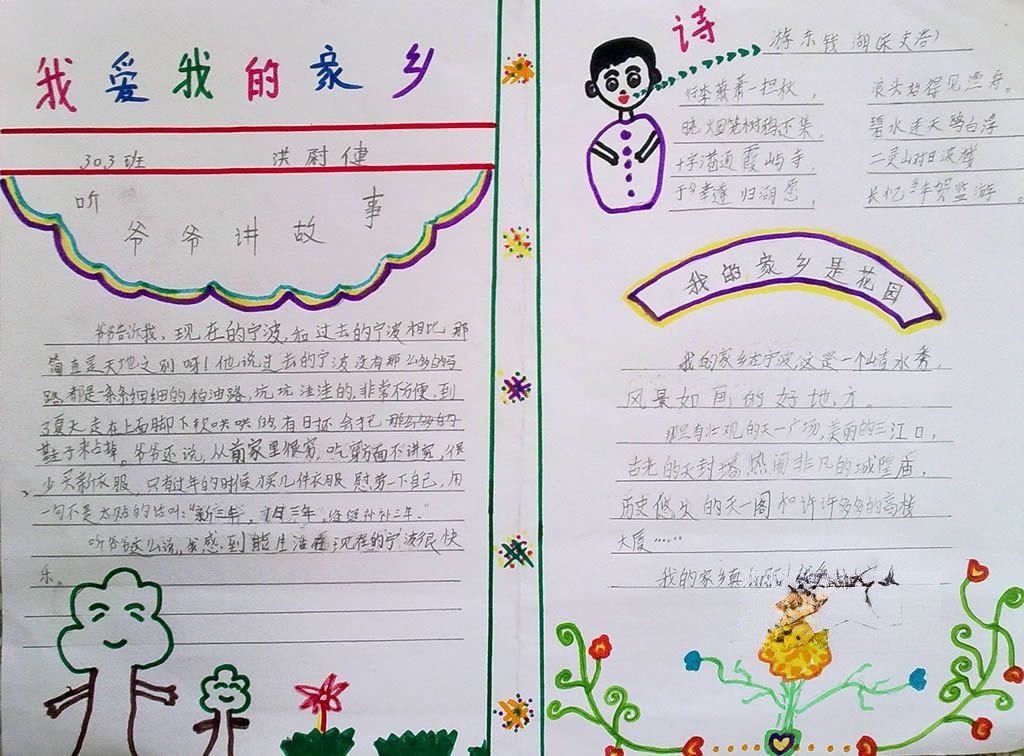 我爱我的家乡
303班 洪尉健
听爷爷讲故事
爷爷告诉我,现在的宁波,和过去的宁波相比那
简直是天地之别呀!他说过去的宁波没有那么多的马
路,都是一条条细细的柏油路,坑坑洼洼的,非常不方便,到
了夏天走在上面脚下软哄哄的,有时还会把
鞋子来占掉。爷爷还说,从前家里很穷,吃穷方面不讲究,很
少买新衣服,只有过年的时候才买几件衣服慰劳一下自己,用
一句不是太贴的话叫:“新三年,旧三年,缝缝补补三年。”
听爷爷这么说,我感到能生活在现在的宁波很快
乐。
诗
游东钱湖(宋史浩)
行李萧萧一担秋,
浪头始得见渔舟。
晓烟笼树鸦还集,
碧水连天鸥白浮
十字港通霞屿寺,
二灵山对月波楼
于今幸遂归湖愿,
长忆当年贺监游。
我的家乡是花园
我的家乡在宁波,这是一个山清水秀,
风景如画的好地方。
那里有壮观的天一广场,美丽的三江口,
古老的天封塔,热闹非凡的城隍庙,
历史悠久的天一阁和许许多多的高楼
大厦……
我的家乡真